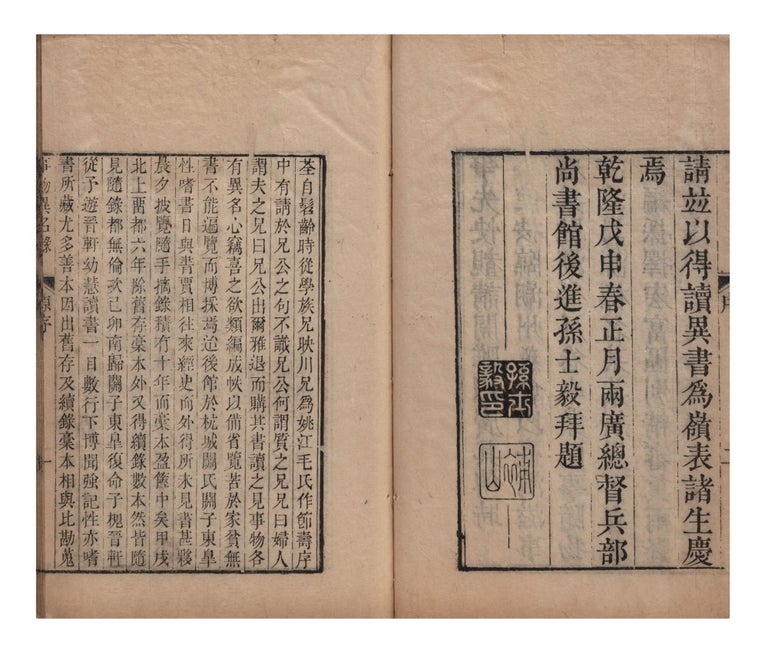 請並以得讀異書爲嶺表諸生慶
焉
乾隆戊申春正月兩廣總督兵部
尚書館後進孫士毅拜題
孫士毅印
補山
序
荃自髫齡時從學族兄映川兄爲姚江毛氏作節壽序
中有請於兄公之句不識兄公何謂質之兄兄曰婦人
謂夫之兄曰兄公出爾雅退而購其書讀之見事物各
有異名心竊喜之欲類編成帙以備省覽苦於家貧無
書不能遍覽而博採焉迨後館於杭城關氏關子東臯
性嗜書日與書賈相往來經史而外得所未見書甚夥
晨夕披覽隨手摘錄積有十年而稾本盈篋中矣甲戌
北上畱都六年除舊存稾本外又得續錄數本然皆隨
見隨錄都無倫次己卯南歸關子東臯復命子槐晉軒
從予遊晉軒幼慧讀書一目數行下博聞強記性亦嗜
書所藏尤多善本因出舊存及續錄稾本相與比勘蒐
事物異名錄
原序
一